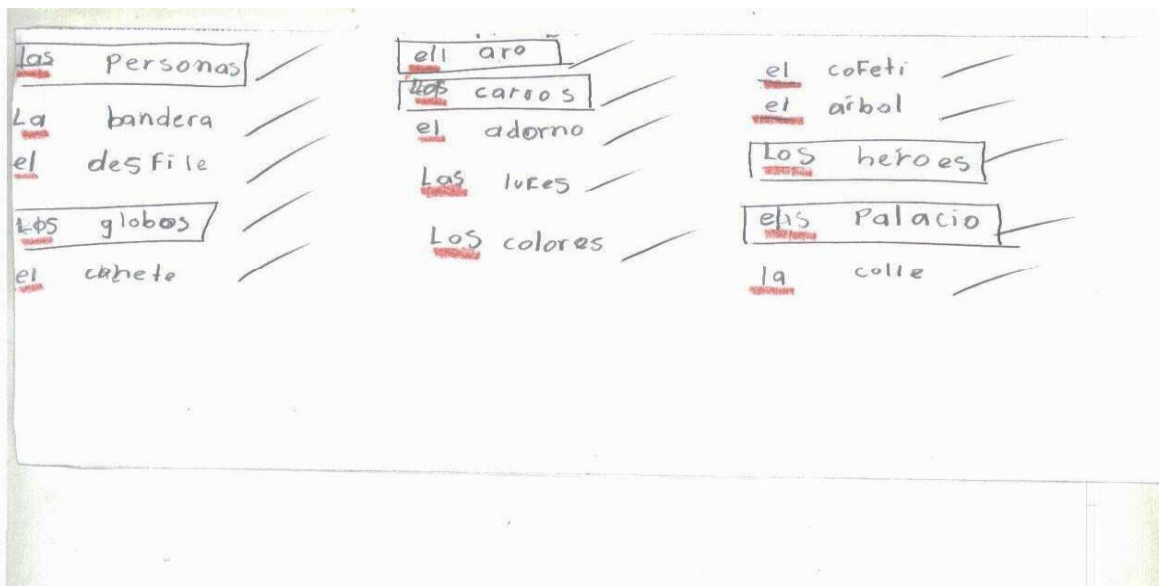 las personas
La bandera
el desfile
Los globos
el cahete
ell aro
Los carros
el adorno
Las luces
Los colores
el cofeti
el arbol
Los heroes
el palacio
la colle